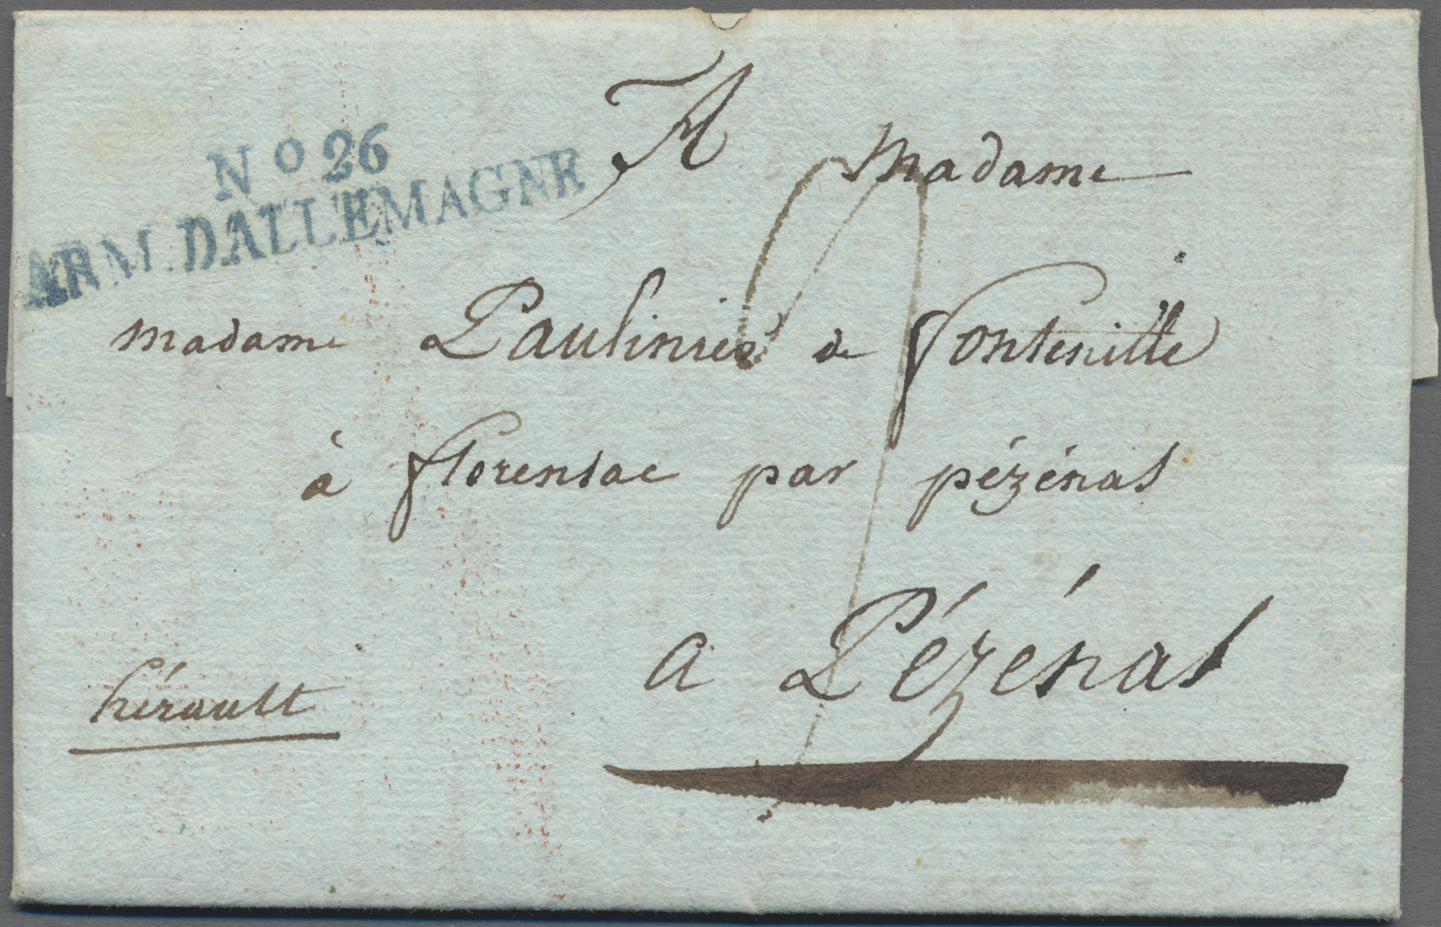 No 26
ARM. DALLEMAGNE
A Madame
madame Paulinier de fontenille
à florensac par pézénas
a Pézénas
hérault